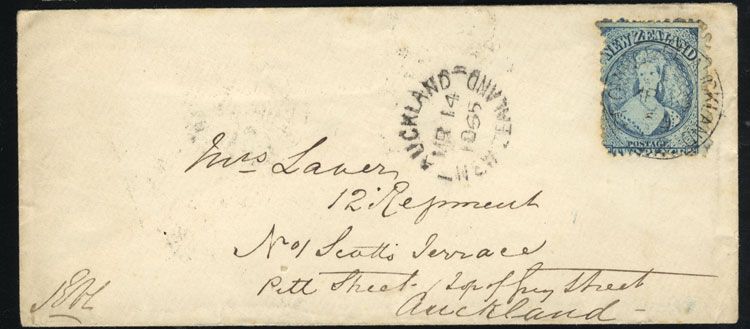 NEW ZEALAND
POSTAGE
AUCKLAND
NEW-ZEALAND
MR 14
1865
AUCKLAND
Mrs Laver
12 Regiment
No 1 Scotts Terrace
Pitt Street top of Grey Street
Auckland